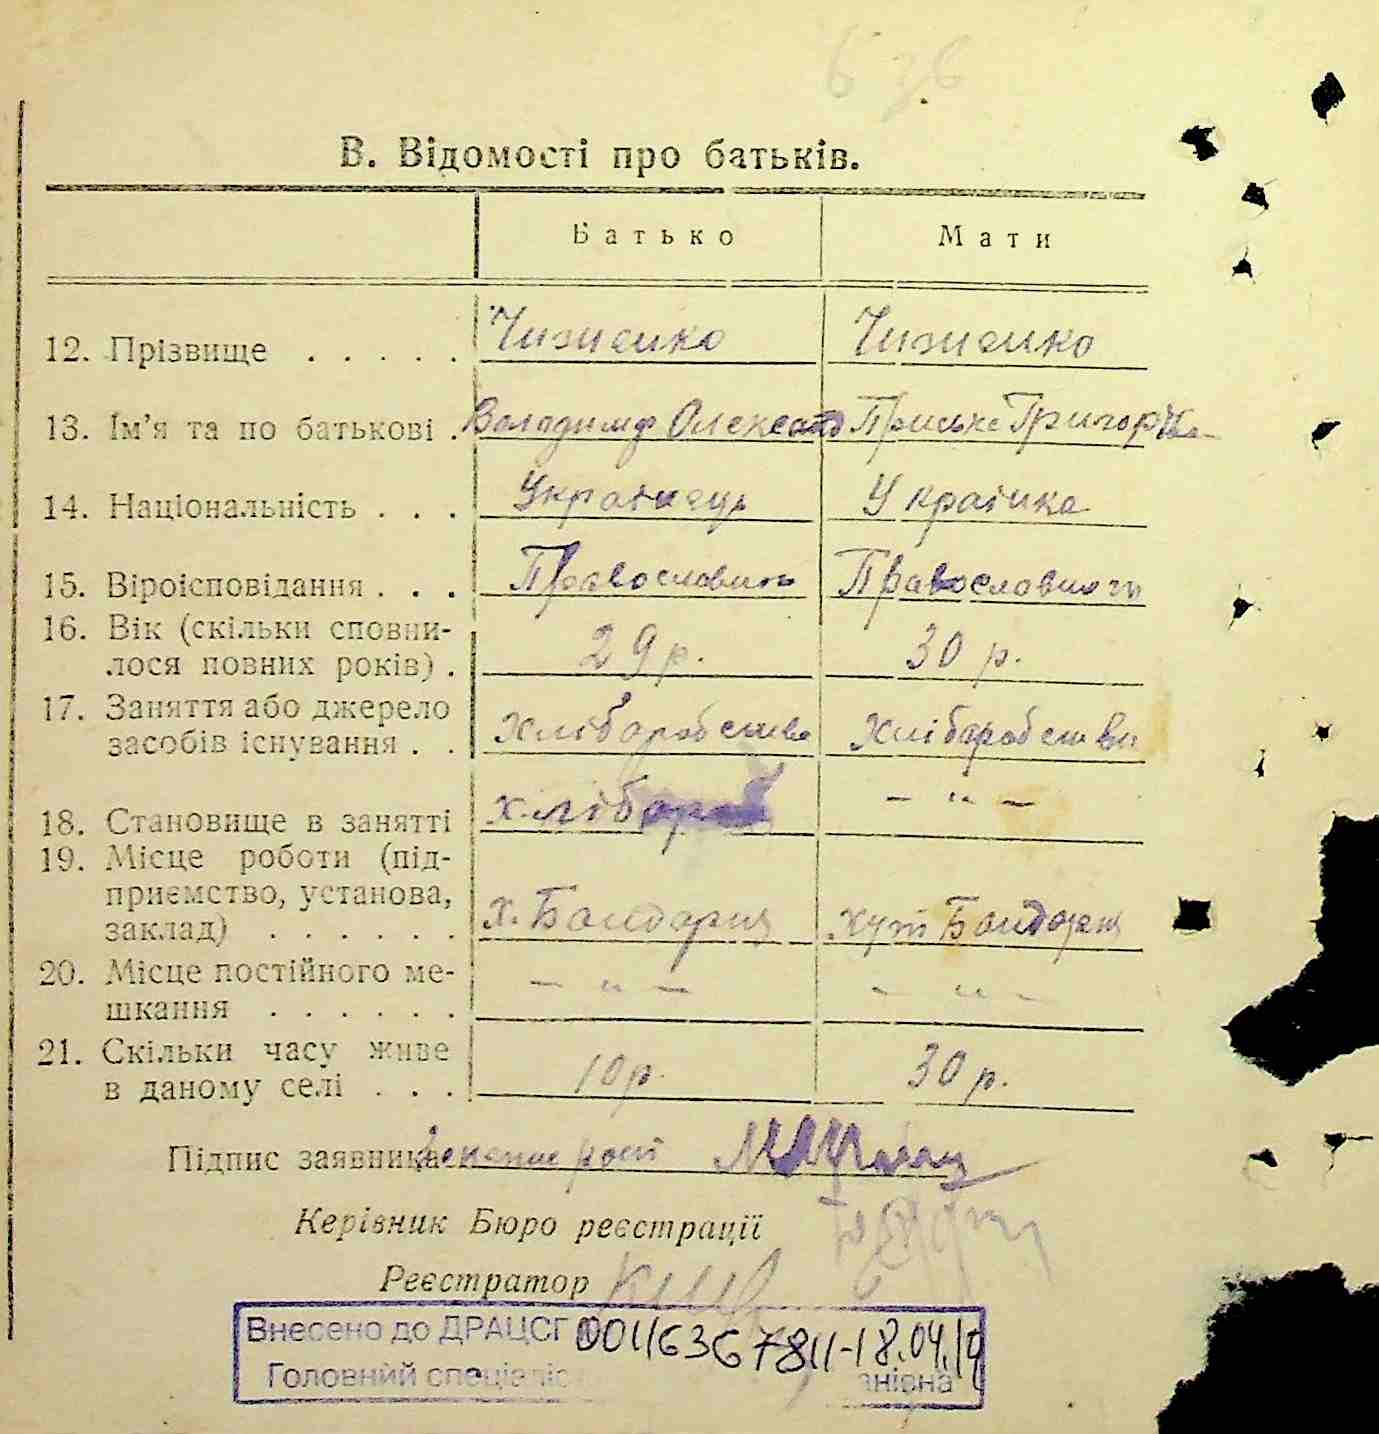 В. Відомості про батьків.
Батько Мати
12. Прізвище . . . . . Чизиенко Чизиенко
13. Ім'я та по батькові . Володимир Олександ Приська Григорівна
14. Національність . . . Українець Українка
15. Віроісповідання . . . Православних Православного
16. Вік (скільки сповни-
лося повних років) . 29 р. 30 р.
17. Заняття або джерело
засобів існування . . Хліборобство Хліборобство
18. Становище в занятті хлібороб — " —
19. Місце роботи (під-
приємство, установа,
заклад) . . . . . . х. Бондарці хут Бондарці
20. Місце постійного ме-
шкання . . . . . . — " — — " —
21. Скільки часу живе
в даному селі . . . 10 р. 30 р.
Підпис заявника
Керівник Бюро реєстрації
Реєстратор
Внесено до ДРАЦСГ 00116367811-18.04.19
Головний спеціаліс анівна